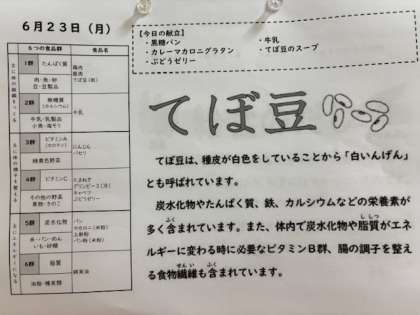 6月23日（月）
【今日の献立】
・黒糖パン
・牛乳
・カレーマカロニグラタン
・てぼ豆のスープ
・ぶどうゼリー
6つの食品群
食品名
1群 たんぱく質
肉・魚・卵
豆・豆製品
鶏肉
豚肉
てぼ豆(乾)
2群 無機質
(カルシウム)
牛乳・乳製品
小魚・海そう
牛乳
3群 ビタミンA
(カロテン)
緑黄色野菜
にんじん
パセリ
4群 ビタミンC
その他の野菜
果物・きのこ
たまねぎ
グリンピース(冷)
キャベツ
ぶどうゼリー
5群 炭水化物
米・パン・めん
いも・砂糖
パン
マカロニ(米粉)
上新粉
パン粉(米粉)
6群 脂質
油脂・種実類
てぼ豆
てぼ豆は、種皮が白色をしていることから「白いんげん」
とも呼ばれています。
炭水化物やたんぱく質、鉄、カルシウムなどの栄養素が
多く含まれています。また、体内で炭水化物や脂質がエ
ネルギーに変わる時に必要なビタミンB群、腸の調子を整え
る食物繊維も含まれています。